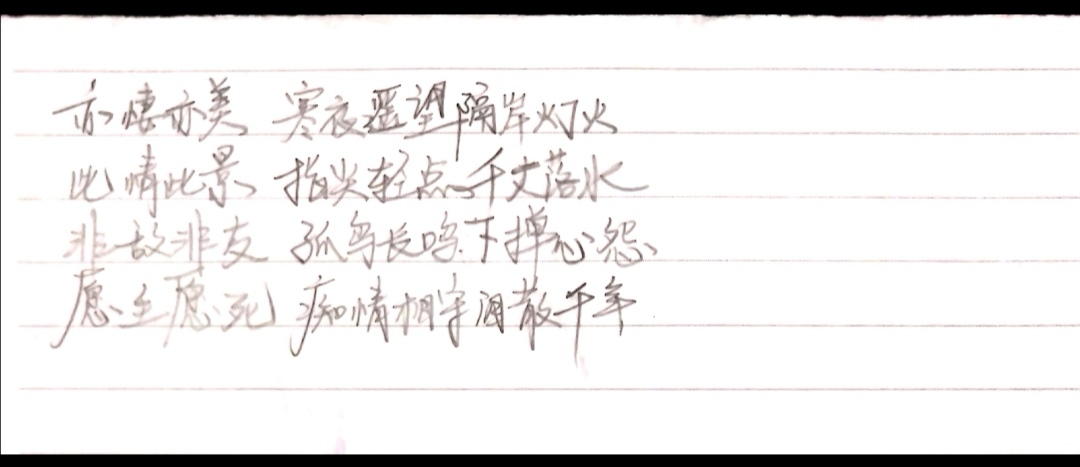 亦悽亦美 寒夜遥望隔岸灯火
此情此景 指尖轻点千丈落水
非敌非友 孤鸟长鸣下掸心怨
愿生愿死 痴情相守消散千年